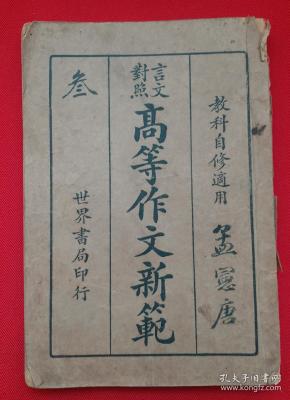 教科自修適用
孟憲唐
言文
對照
高等作文新範
叁
世界書局印行
孔夫子旧书网